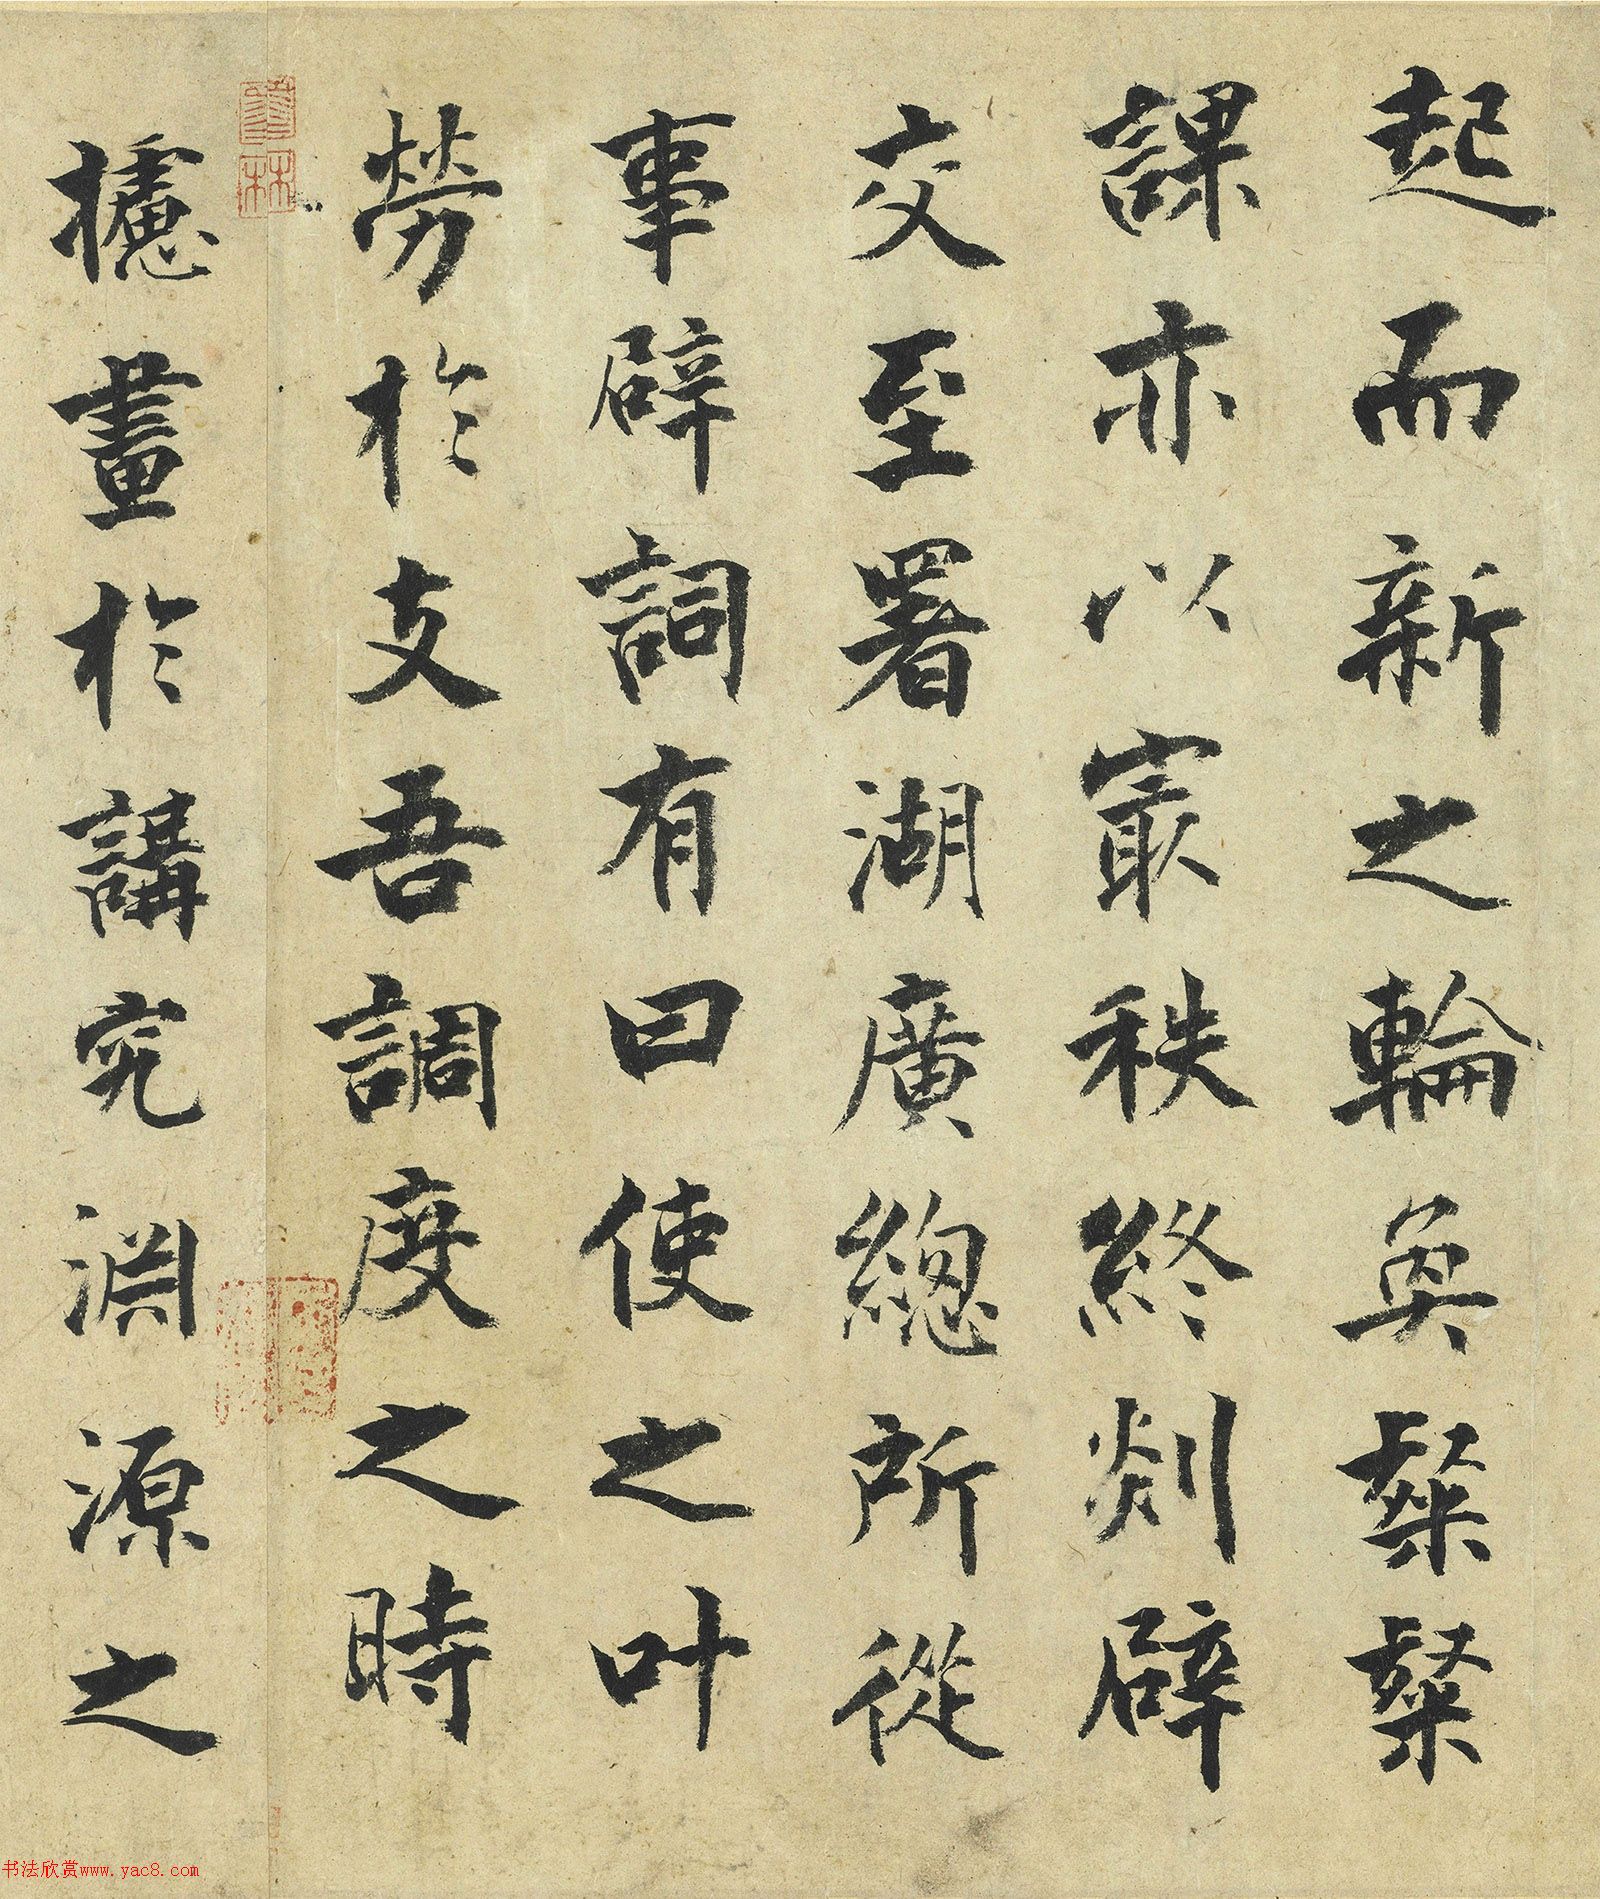 起而新之輪奐粲粲
課亦以冣秩終剡辟
交至署湖廣緫所從
事辟詞有曰使之叶
勞於支吾調度之時
攄畫於講究淵源之
书法欣赏www.yac8.com